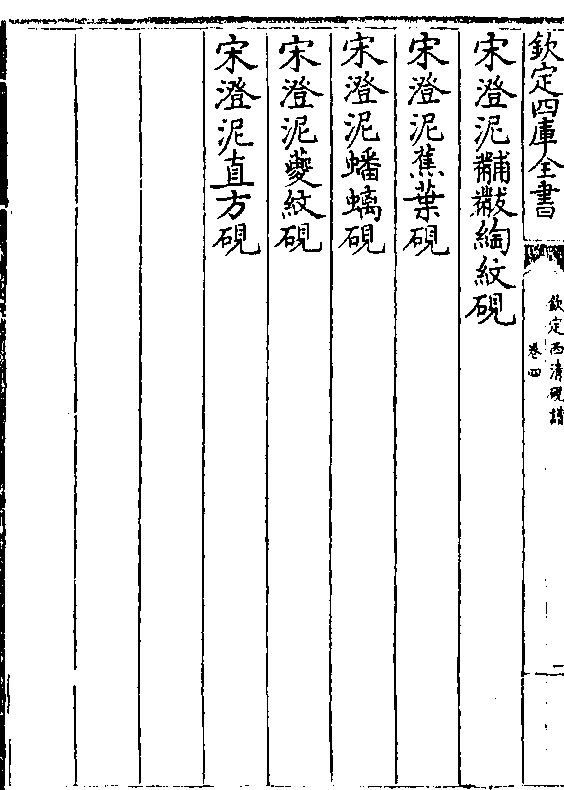 欽定四庫全書
欽定西清硯譜
卷四
二
宋澄泥黼黻綯紋硯
宋澄泥蕉葉硯
宋澄泥蟠螭硯
宋澄泥夔紋硯
宋澄泥直方硯